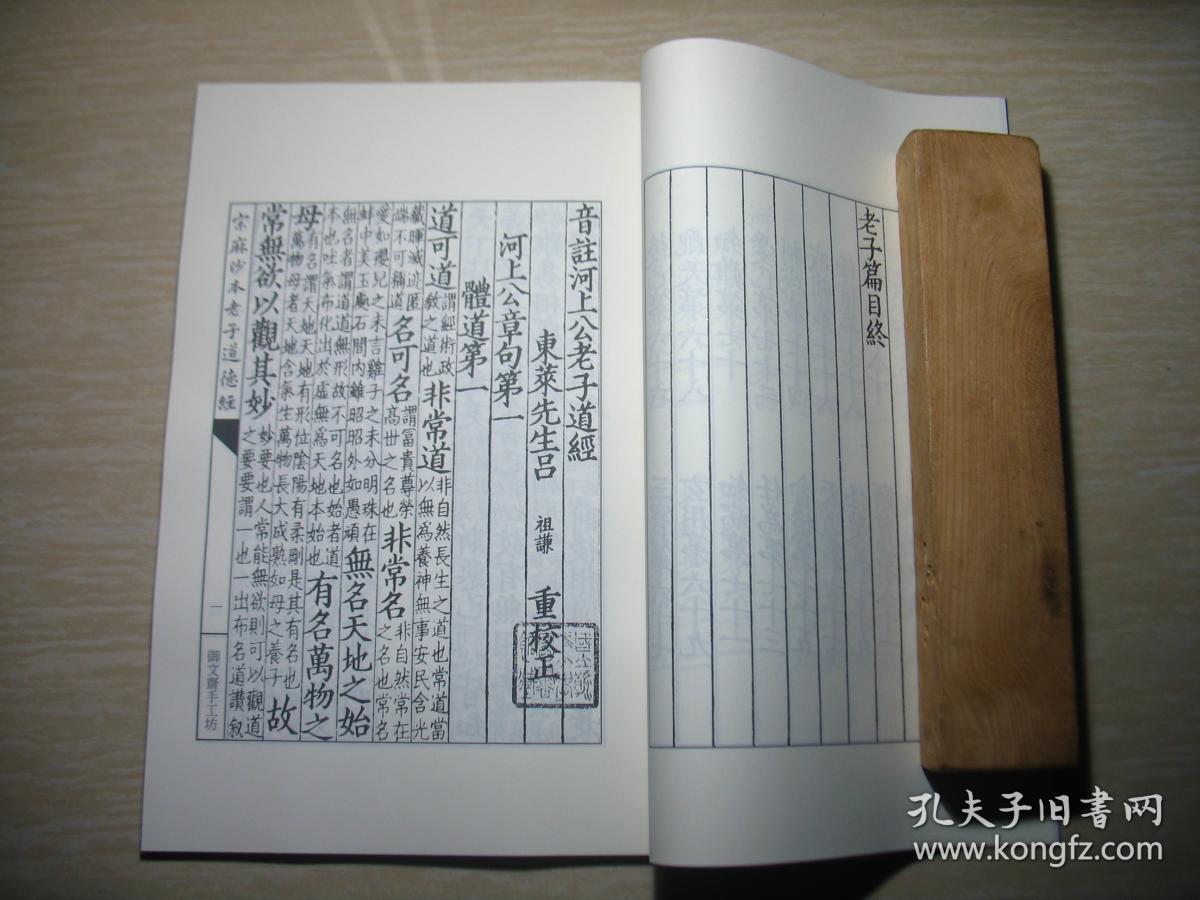 老子篇目終
音註河上公老子道經
東萊先生呂 祖謙 重校正
河上公章句第一
體道第一
道可道謂經術政教之道也非常道非自然長生之道也常道當以無為養神無事安民含光
藏暉滅迹匿端不可稱道名可名謂富貴尊榮高世之名也非常名非自然常在之名也常名
愛如嬰兒之未言雞子之未分明珠在蚌中美玉處石間內雖昭昭外如愚頑無名天地之始
無名者謂道道無形故不可名也始者道本也吐氣布化出於虛無為天地本始也有名萬物之
母有名謂天地天地有形位陰陽有柔剛是其有名也萬物母者天地含氣生萬物長大成熟如母之養子故
常無欲以觀其妙妙要也人常能無欲則可以觀道之要要謂一也一出布名道讚叙
宗麻沙本老子道德經
一
御文齋手工坊
孔夫子旧书网
www.kongfz.com